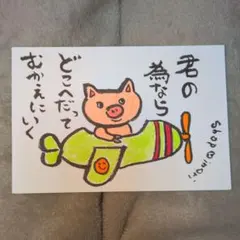 君の
為なら
どこへだって
むかえにいく